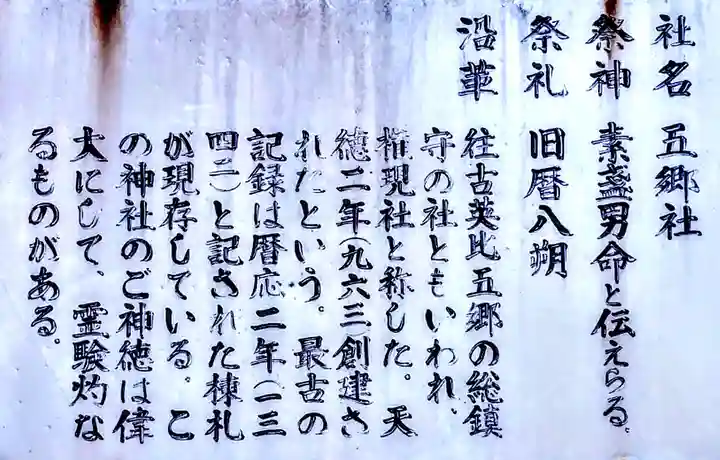 社名 五郷社
祭神 素盞男命と伝えらる。
祭礼 旧暦八朔
沿革 往古英比五郷の総鎮
守の社ともいわれ、
権現社と称した。天
徳二年(九六三)創建さ
れたという。最古の
記録は暦応二年(一三
四二)と記された棟札
が現存している。こ
の神社のご神徳は偉
大にして、霊験灼な
るものがある。